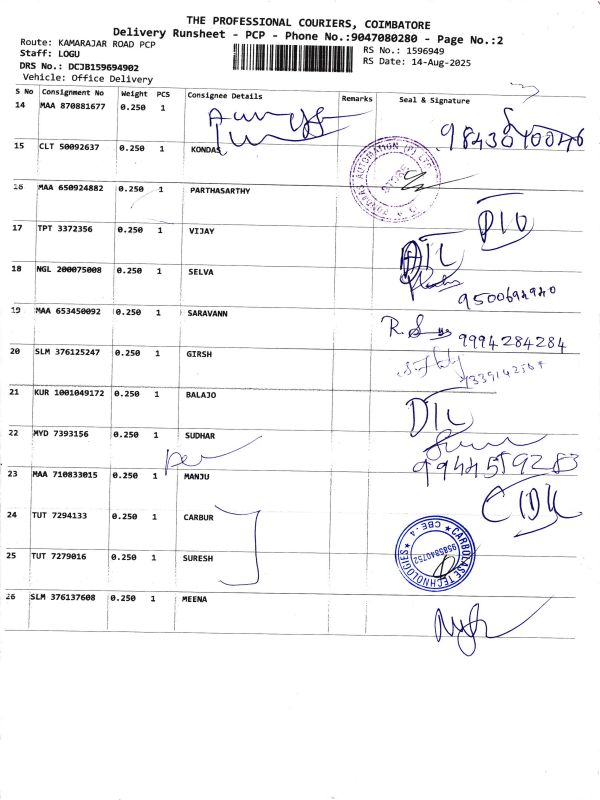 THE PROFESSIONAL COURIERS, COIMBATORE
Delivery Runsheet - PCP - Phone No.:9047080280 - Page No.:2
Route: KAMARAJAR ROAD PCP
Staff: LOGU
DRS No.: DCJB159694902
Vehicle: Office Delivery
RS No.: 1596949
RS Date: 14-Aug-2025
S No Consignment No Weight PCS Consignee Details Remarks Seal & Signature
14 MAA 870881677 0.250 1
15 CLT 50092637 0.250 1 KONDAS
16 MAA 650924882 0.250 1 PARTHASARTHY
17 TPT 3372356 0.250 1 VIJAY
18 NGL 200075008 0.250 1 SELVA
9500694940
19 MAA 653450092 0.250 1 SARAVANN
9994284284
20 SLM 376125247 0.250 1 GIRSH
21 KUR 1001049172 0.250 1 BALAJO
22 MYD 7393156 0.250 1 SUDHAR
9944559283
23 MAA 710833015 0.250 1 MANJU
24 TUT 7294133 0.250 1 CARBUR
CARBOLASE TECHNOLOGIES
CBE.4
9585840752
25 TUT 7279016 0.250 1 SURESH
26 SLM 376137608 0.250 1 MEENA